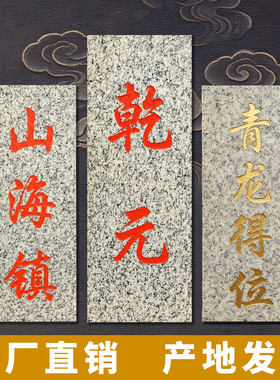 山海镇
乾元
青龙得位
厂直销 产地发